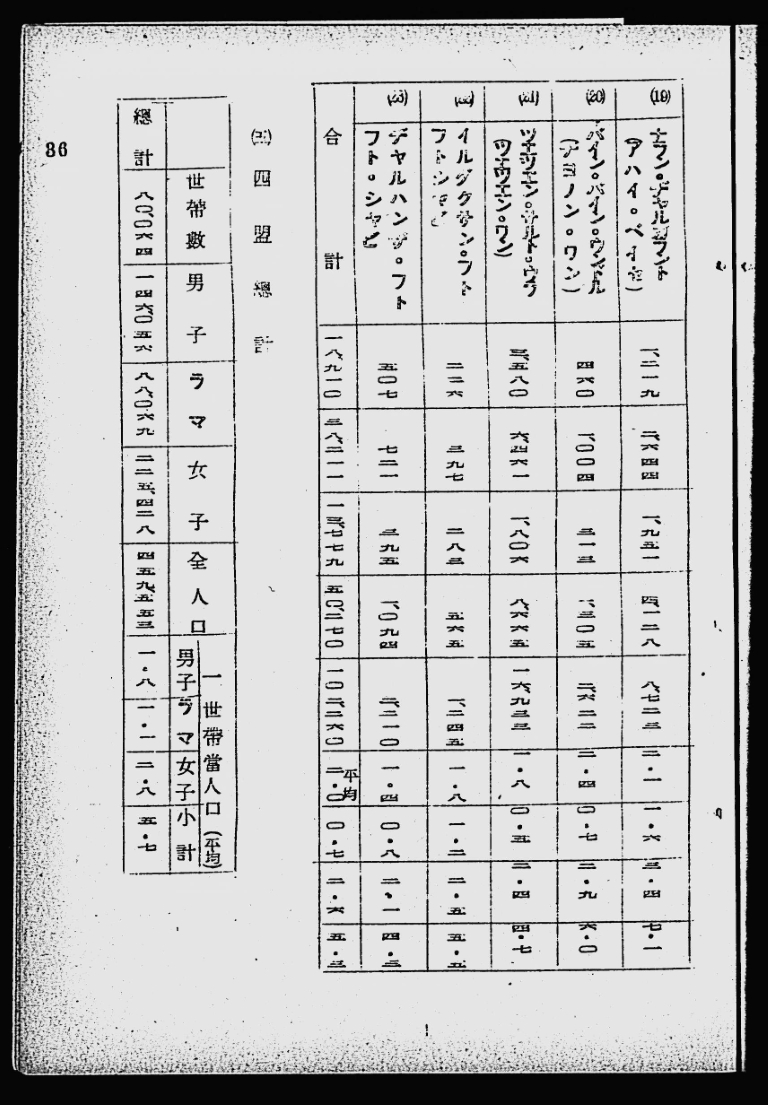 (19) ナラン・ヂャルガラント 一、二一九 二、六四四 一、九五一 四、一二八 八、七二三 二・一 一・六 三・四 七・一
(アハイ・ベイセ)
(20) バイン・バイン・ウンドル 四六〇 一、〇〇四 三一三 一、三〇五 二、六二二 二・四 〇・七 二・九 六・〇
(デヨノン・ワン)
(21) ツェツェン・サルト・ウラ 三、五八〇 六、四六一 一、八〇六 八、六六五 一六、九三二 一・八 〇・五 二・四 四・七
(ツェツェン・ワン)
(22) イルデグサン・フト 二二六 三九七 二八三 五六五 一、二四五 一・八 一・二 二・五 五・五
フトシャビ
(23) ヂャルハンザ・フト 五〇七 七二一 三九五 一、〇九四 二、二一〇 一・四 〇・八 二・一 四・三
フト・シャビ
合計 一八、九一〇 三八、二一一 一三、七七九 五〇、二七〇 一〇二、二六〇 平均 二・〇 〇・七 二・六 五・三
(三) 四盟總計
世帶數 男子 ラマ 女子 全人口 一世帶當人口(平均)
男子 ラマ 女子 小計
總計 八〇、〇六四 一四六、〇五六 八八、〇六九 二二五、四二八 四五九、五五三 一・八 一・一 二・八 五・七
86